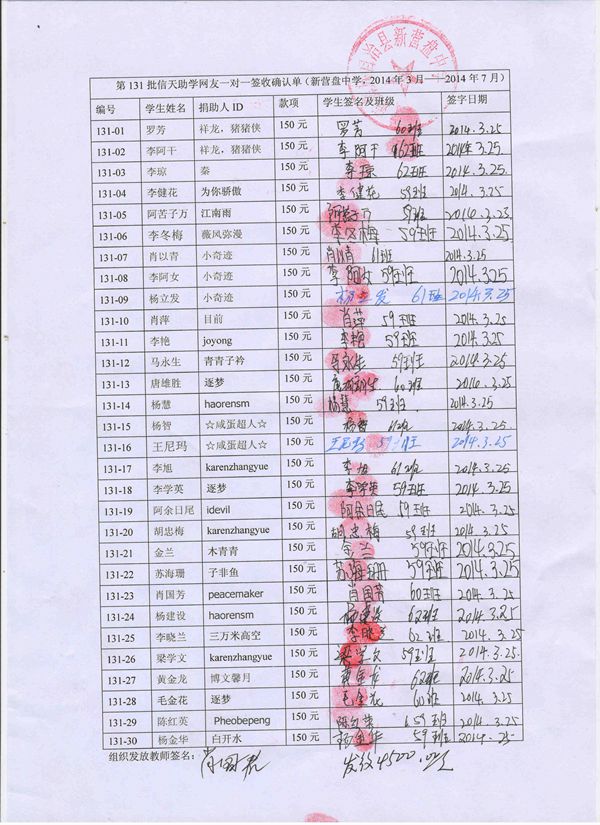 自治县新营盘中
第 131 批信天助学网友一对一签收确认单（新营盘中学，2014 年 3 月——2014 年 7 月）
编号 学生姓名 捐助人 ID 款项 学生签名及班级 签字日期
131-01 罗芳 祥龙，猪猪侠 150 元 罗芳 60班 2014.3.25
131-02 李阿干 祥龙，猪猪侠 150 元 李阿干 62班 2014年3.25
131-03 李琼 秦 150 元 李琼 62班 2014.3.25.
131-04 李健花 为你骄傲 150 元 李健花 59班 2014.3.25
131-05 阿苦子万 江南雨 150 元 59班 2014.3.23
131-06 李冬梅 薇风弥漫 150 元 李冬梅 59班 2014.3.25
131-07 肖以青 小奇迹 150 元 肖以青 61班 2014.3.25
131-08 李阿女 小奇迹 150 元 李阿女 59班 2014.3.25
131-09 杨立发 小奇迹 150 元 杨立发 61班 2014.3.25
131-10 肖萍 目前 150 元 肖萍 59班 2014.3.25
131-11 李艳 joyong 150 元 李艳 59班 2014.3.25
131-12 马永生 青青子衿 150 元 马永生 59班 2014.3.25
131-13 唐雄胜 逐梦 150 元 60班 2014.3.25
131-14 杨慧 haorensm 150 元 杨慧 59班 2014.3.25
131-15 杨智 ☆咸蛋超人☆ 150 元 杨智 61班 2014.3.25
131-16 王尼玛 ☆咸蛋超人☆ 150 元 王尼玛 59班 2014.3.25
131-17 李旭 karenzhangyue 150 元 李旭 61班 2014.3.25
131-18 李学英 逐梦 150 元 李学英 59班 2014.3.25
131-19 阿余日尾 idevil 150 元 阿余日尾 59班 2014.3.25
131-20 胡忠梅 karenzhangyue 150 元 胡忠梅 59班 2014.3.25
131-21 金兰 木青青 150 元 金兰 59班 2014.3.25
131-22 苏海珊 子非鱼 150 元 苏海珊 59班 2014.3.25
131-23 肖国芳 peacemaker 150 元 肖国芳 60班 2014.3.25
131-24 杨建设 haorensm 150 元 杨建设 62班 2014.3.25
131-25 李晓兰 三万米高空 150 元 李晓兰 62班 2014.3.25
131-26 梁学文 karenzhangyue 150 元 梁学文 59班 2014.3.25
131-27 黄金龙 博文馨月 150 元 黄金龙 62班 2014.3.25
131-28 毛金花 逐梦 150 元 毛金花 60班 2014.3.25
131-29 陈红英 Pheobepeng 150 元 59班 2014.3.25
131-30 杨金华 白开水 150 元 杨金华 59班 2014.3.25
组织发放教师签名： 发放4500.00元